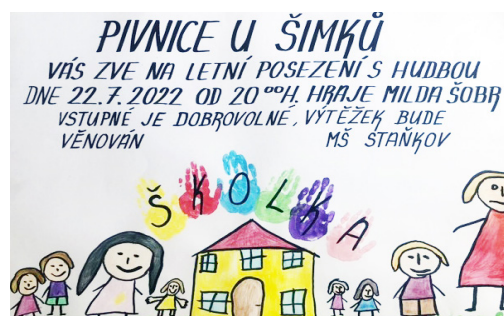 PIVNICE U ŠIMKŮ
VÁS ZVE NA LETNÍ POSEZENÍ S HUDBOU
DNE 22.7.2022 OD 20ººH. HRAJE MILDA ŠOBR
VSTUPNÉ JE DOBROVOLNÉ, VÝTĚŽEK BUDE
VĚNOVÁN MŠ STAŇKOV
ŠKOLKA